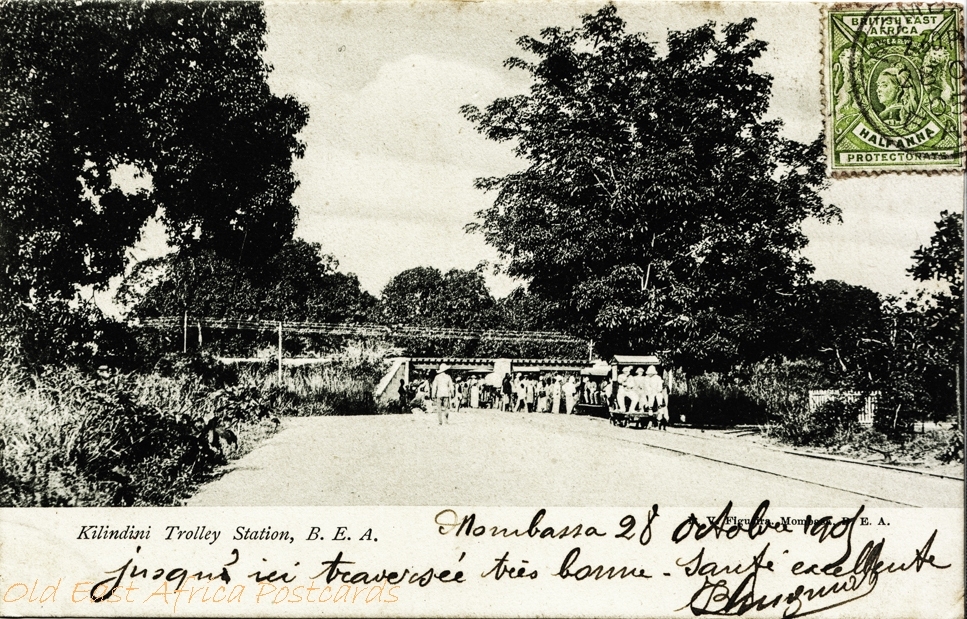 BRITISH EAST
AFRICA
HALF ANNA
PROTECTORATE
Kilindini Trolley Station, B. E. A.
Mombassa 28 Octobre 1905
jusqu'ici traversée très bonne - Santé excellente
Old East Africa Postcards